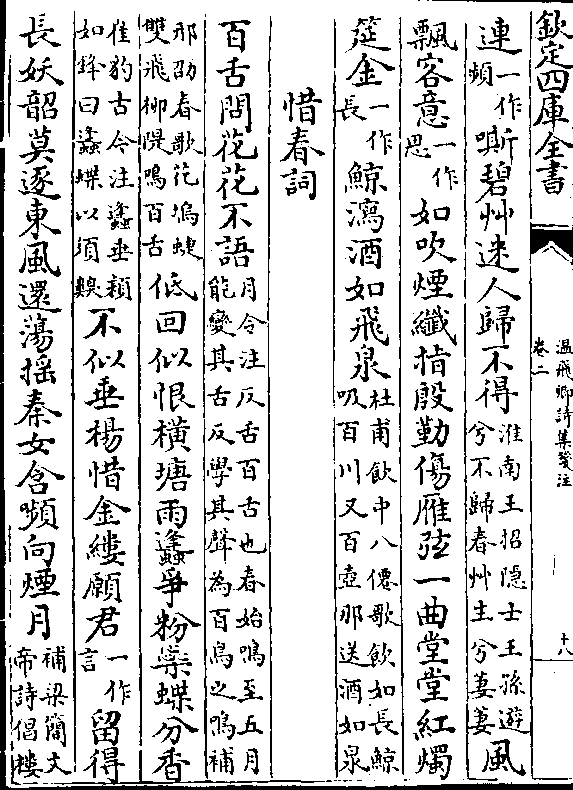 欽定四庫全書
溫飛卿詩集箋注
卷二
十八
連一作頻嘶碧艸迷人歸不得淮南王招隱士王孫遊兮不歸春艸生兮萋萋風
飄客意一作思如吹煙纖指殷勤傷雁弦一曲堂堂紅燭
筵金一作長鯨瀉酒如飛泉杜甫飲中八僊歌飲如長鯨吸百川又百壺那送酒如泉
惜春詞
百舌問花花不語月令注反舌百舌也春始鳴至五月能變其舌反學其聲為百鳥之鳴補
那劭春歌花塢蜨雙飛柳隄鳴百舌低回似恨橫塘雨蠭爭粉蘂蝶分香
崔豹古今注蠭垂穎如鋒曰蠭蝶以須嗅不似垂楊惜金縷願君一作言留得
長妖韶莫逐東風還蕩搖秦女含嚬向煙月補梁簡文帝詩倡樓